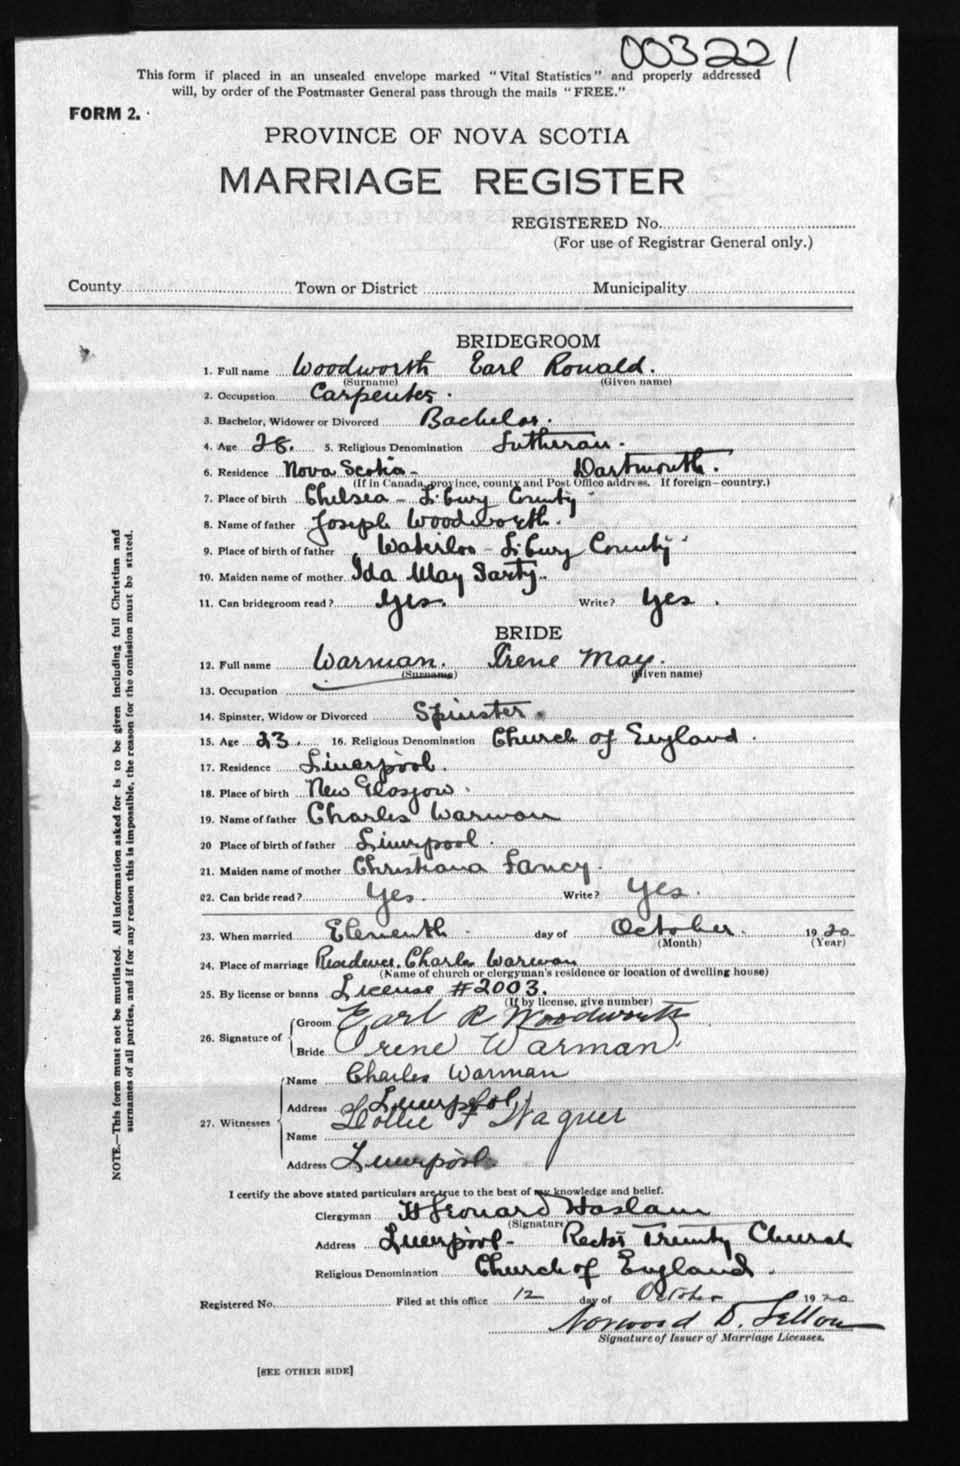 003221
This form if placed in an unsealed envelope marked "Vital Statistics" and properly addressed
will, by order of the Postmaster General pass through the mails "FREE."
FORM 2.
PROVINCE OF NOVA SCOTIA
MARRIAGE REGISTER
REGISTERED No.
(For use of Registrar General only.)
County Town or District Municipality
BRIDEGROOM
1. Full name Woodworth Earl Ronald.
(Surname) (Given name)
2. Occupation Carpenter.
3. Bachelor, Widower or Divorced Bachelor.
4. Age 28. 5. Religious Denomination Lutheran.
6. Residence Nova Scotia - Dartmouth.
(If in Canada, province, county and Post Office address. If foreign—country.)
7. Place of birth Chelsea - County
8. Name of father Joseph Woodworth.
9. Place of birth of father Waterloo - County
10. Maiden name of mother Ida May Sarty.
11. Can bridegroom read? Yes. Write? Yes.
BRIDE
12. Full name Warman. Irene May.
(Surname) (Given name)
13. Occupation
14. Spinster, Widow or Divorced Spinster.
15. Age 23. 16. Religious Denomination Church of England.
17. Residence Liverpool.
18. Place of birth New Glasgow.
19. Name of father Charles Warman
20 Place of birth of father Liverpool.
21. Maiden name of mother Christiana Fancy.
22. Can bride read? Yes. Write? Yes.
23. When married Eleventh day of October. 1920
(Month) (Year)
24. Place of marriage Residence. Charles Warman
(Name of church or clergyman's residence or location of dwelling house)
25. By license or banns License #2003.
(If by license, give number)
26. Signature of Groom Earl R Woodworth
Bride Irene Warman.
27. Witnesses
Name Charles Warman
Address Liverpool
Name F Wagner
Address Liverpool
I certify the above stated particulars are true to the best of my knowledge and belief.
Clergyman H Leonard Haslam
(Signature
Address Liverpool - Rector Trinity Church
Religious Denomination Church of England.
Registered No. Filed at this office 12 day of October 1920
Norwood D.
Signature of Issuer of Marriage Licenses.
[SEE OTHER SIDE]
NOTE.—This form must not be mutilated. All information asked for is to be given including full Christian and
surnames of all parties, and if for any reason this is impossible, the reason for the omission must be stated.